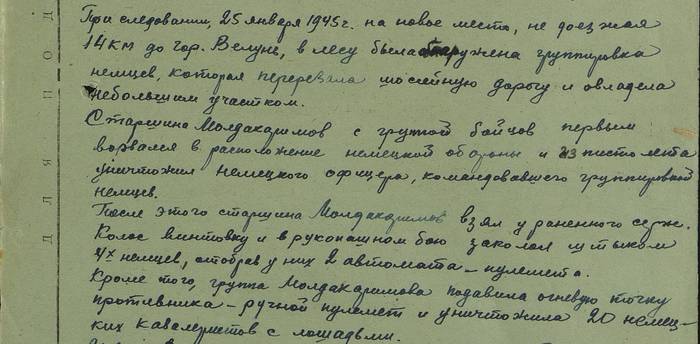 При следовании, 25 января 1945 г. на новое место, не доезжая
14 км до гор. Велунь, в лесу была обнаружена группировка
немцев, которая перерезала шоссейную дорогу и овладела
небольшим участком.
Старшина Молдакаримов с группой бойцов первым
ворвался в расположение немецкой обороны и из пистолета
уничтожил немецкого офицера, командовавшего группировкой
немцев.
После этого старшина Молдакаримов взял у раненного серж.
Колос винтовку и в рукопашном бою заколол штыком
4х немцев, отобрав у них 2 автомата - пулемета.
Кроме того, группа Молдакаримова подавила огневую точку
противника - ручной пулемет и уничтожила 20 немец-
ких кавалеристов с лошадьми.
ДЛЯ ПОД